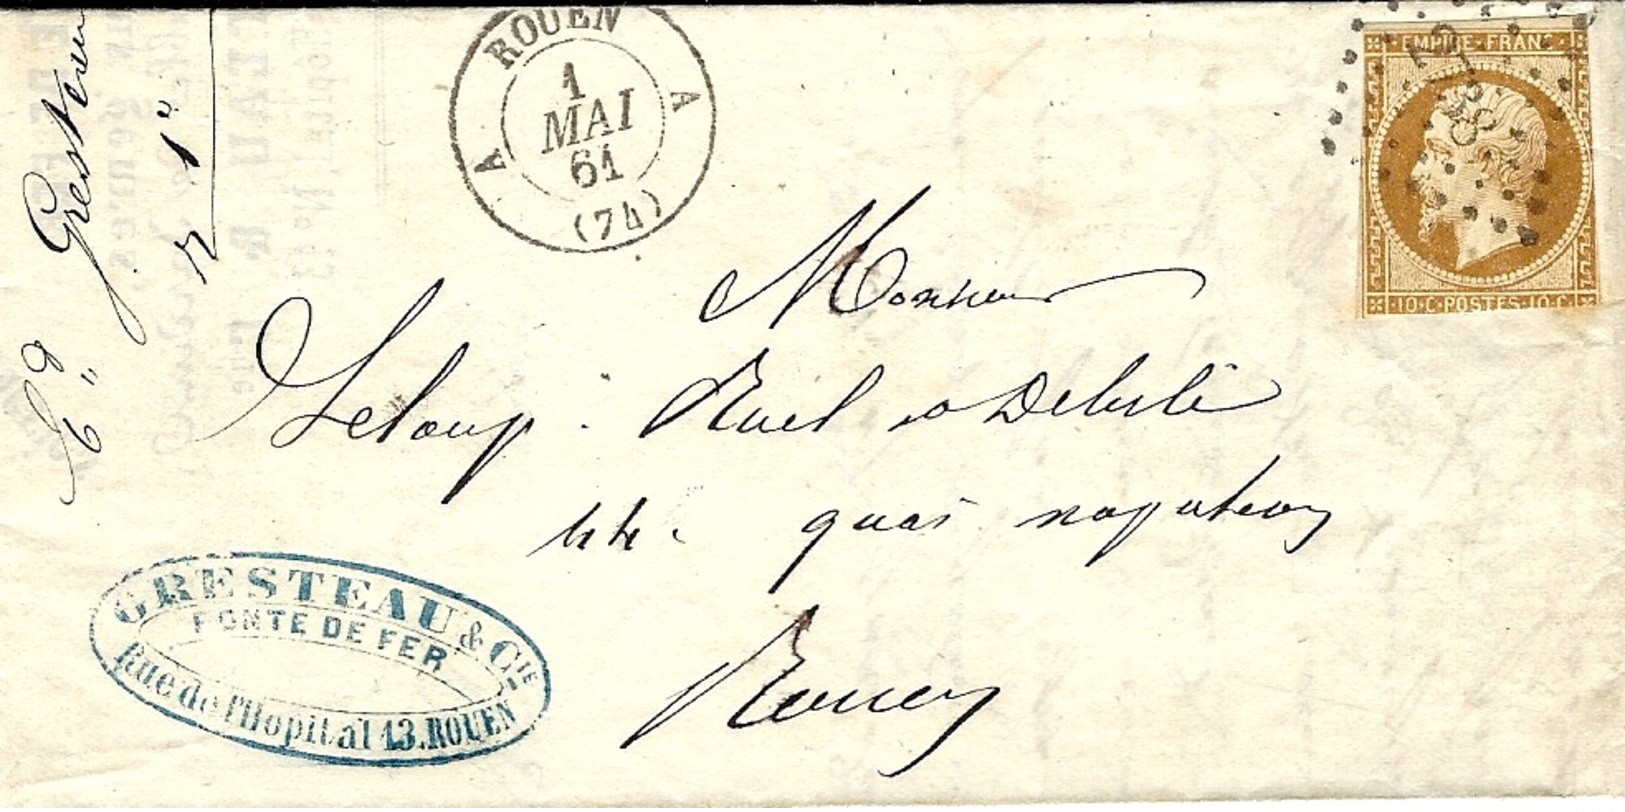 ROUEN
1
MAI
61
(74)
A
A
EMPIRE · FRANC
10·C·POSTES·10·C
Monsieur
Leloup . Ruel et
44. quai napoleon
Rouen
GRESTEAU & Cie
FONTE DE FER
Rue de l'Hopital 13. ROUEN
Gresteau
1er